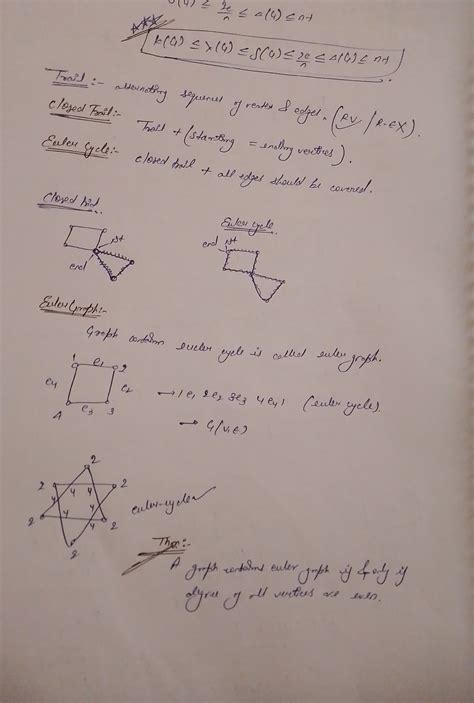 δ(G) ≤ 2e/n ≤ Δ(G) ≤ n-1
k(G) ≤ λ(G) ≤ δ(G) ≤ 2e/n ≤ Δ(G) ≤ n-1
Trail :- alternating sequence of vertex & edges. (RV / R-EX).
Closed Trail:- Trail + (starting = ending vertices).
Euler Cycle:- closed trail + all edges should be covered.
Closed trail
Euler cycle
st
end
end st
Euler Graph:-
Graph contains euler cycle is called euler graph.
1 e1 2
e4 e2 → 1e1 2e2 3e3 4e4 1 (euler cycle).
4 e3 3
→ G(v,e)
2
2 4 4 2
4 4
2 4 4 2
2
euler-cycle ✓
Theo:-
A graph contains euler graph if & only if
degree of all vertices are even.